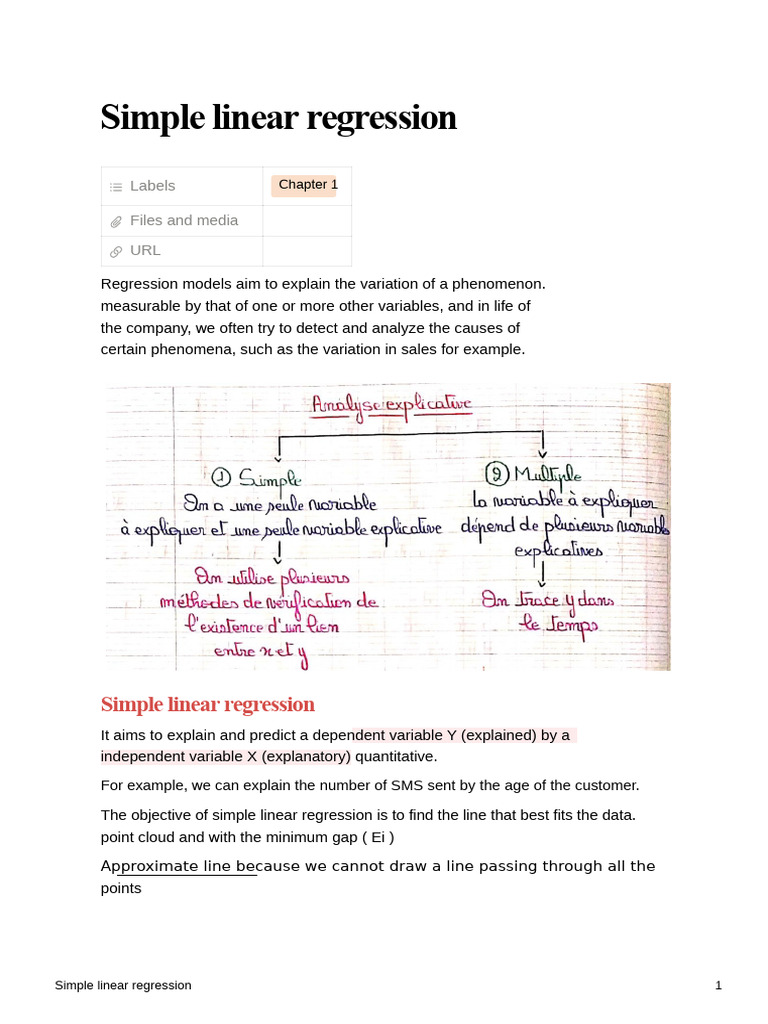 Simple linear regression
Labels
Chapter 1
Files and media
URL
Regression models aim to explain the variation of a phenomenon.
measurable by that of one or more other variables, and in life of
the company, we often try to detect and analyze the causes of
certain phenomena, such as the variation in sales for example.
Analyse explicative
① Simple
On a une seule variable
à expliquer et une seule variable explicative
On utilise plusieurs
méthodes de vérification de
l'existence d'un lien
entre x et y
② Multiple
la variable à expliquer
dépend de plusieurs variables
explicatives
On trace y dans
le temps
Simple linear regression
It aims to explain and predict a dependent variable Y (explained) by a
independent variable X (explanatory) quantitative.
For example, we can explain the number of SMS sent by the age of the customer.
The objective of simple linear regression is to find the line that best fits the data.
point cloud and with the minimum gap ( Ei )
Approximate line because we cannot draw a line passing through all the
points
Simple linear regression
1